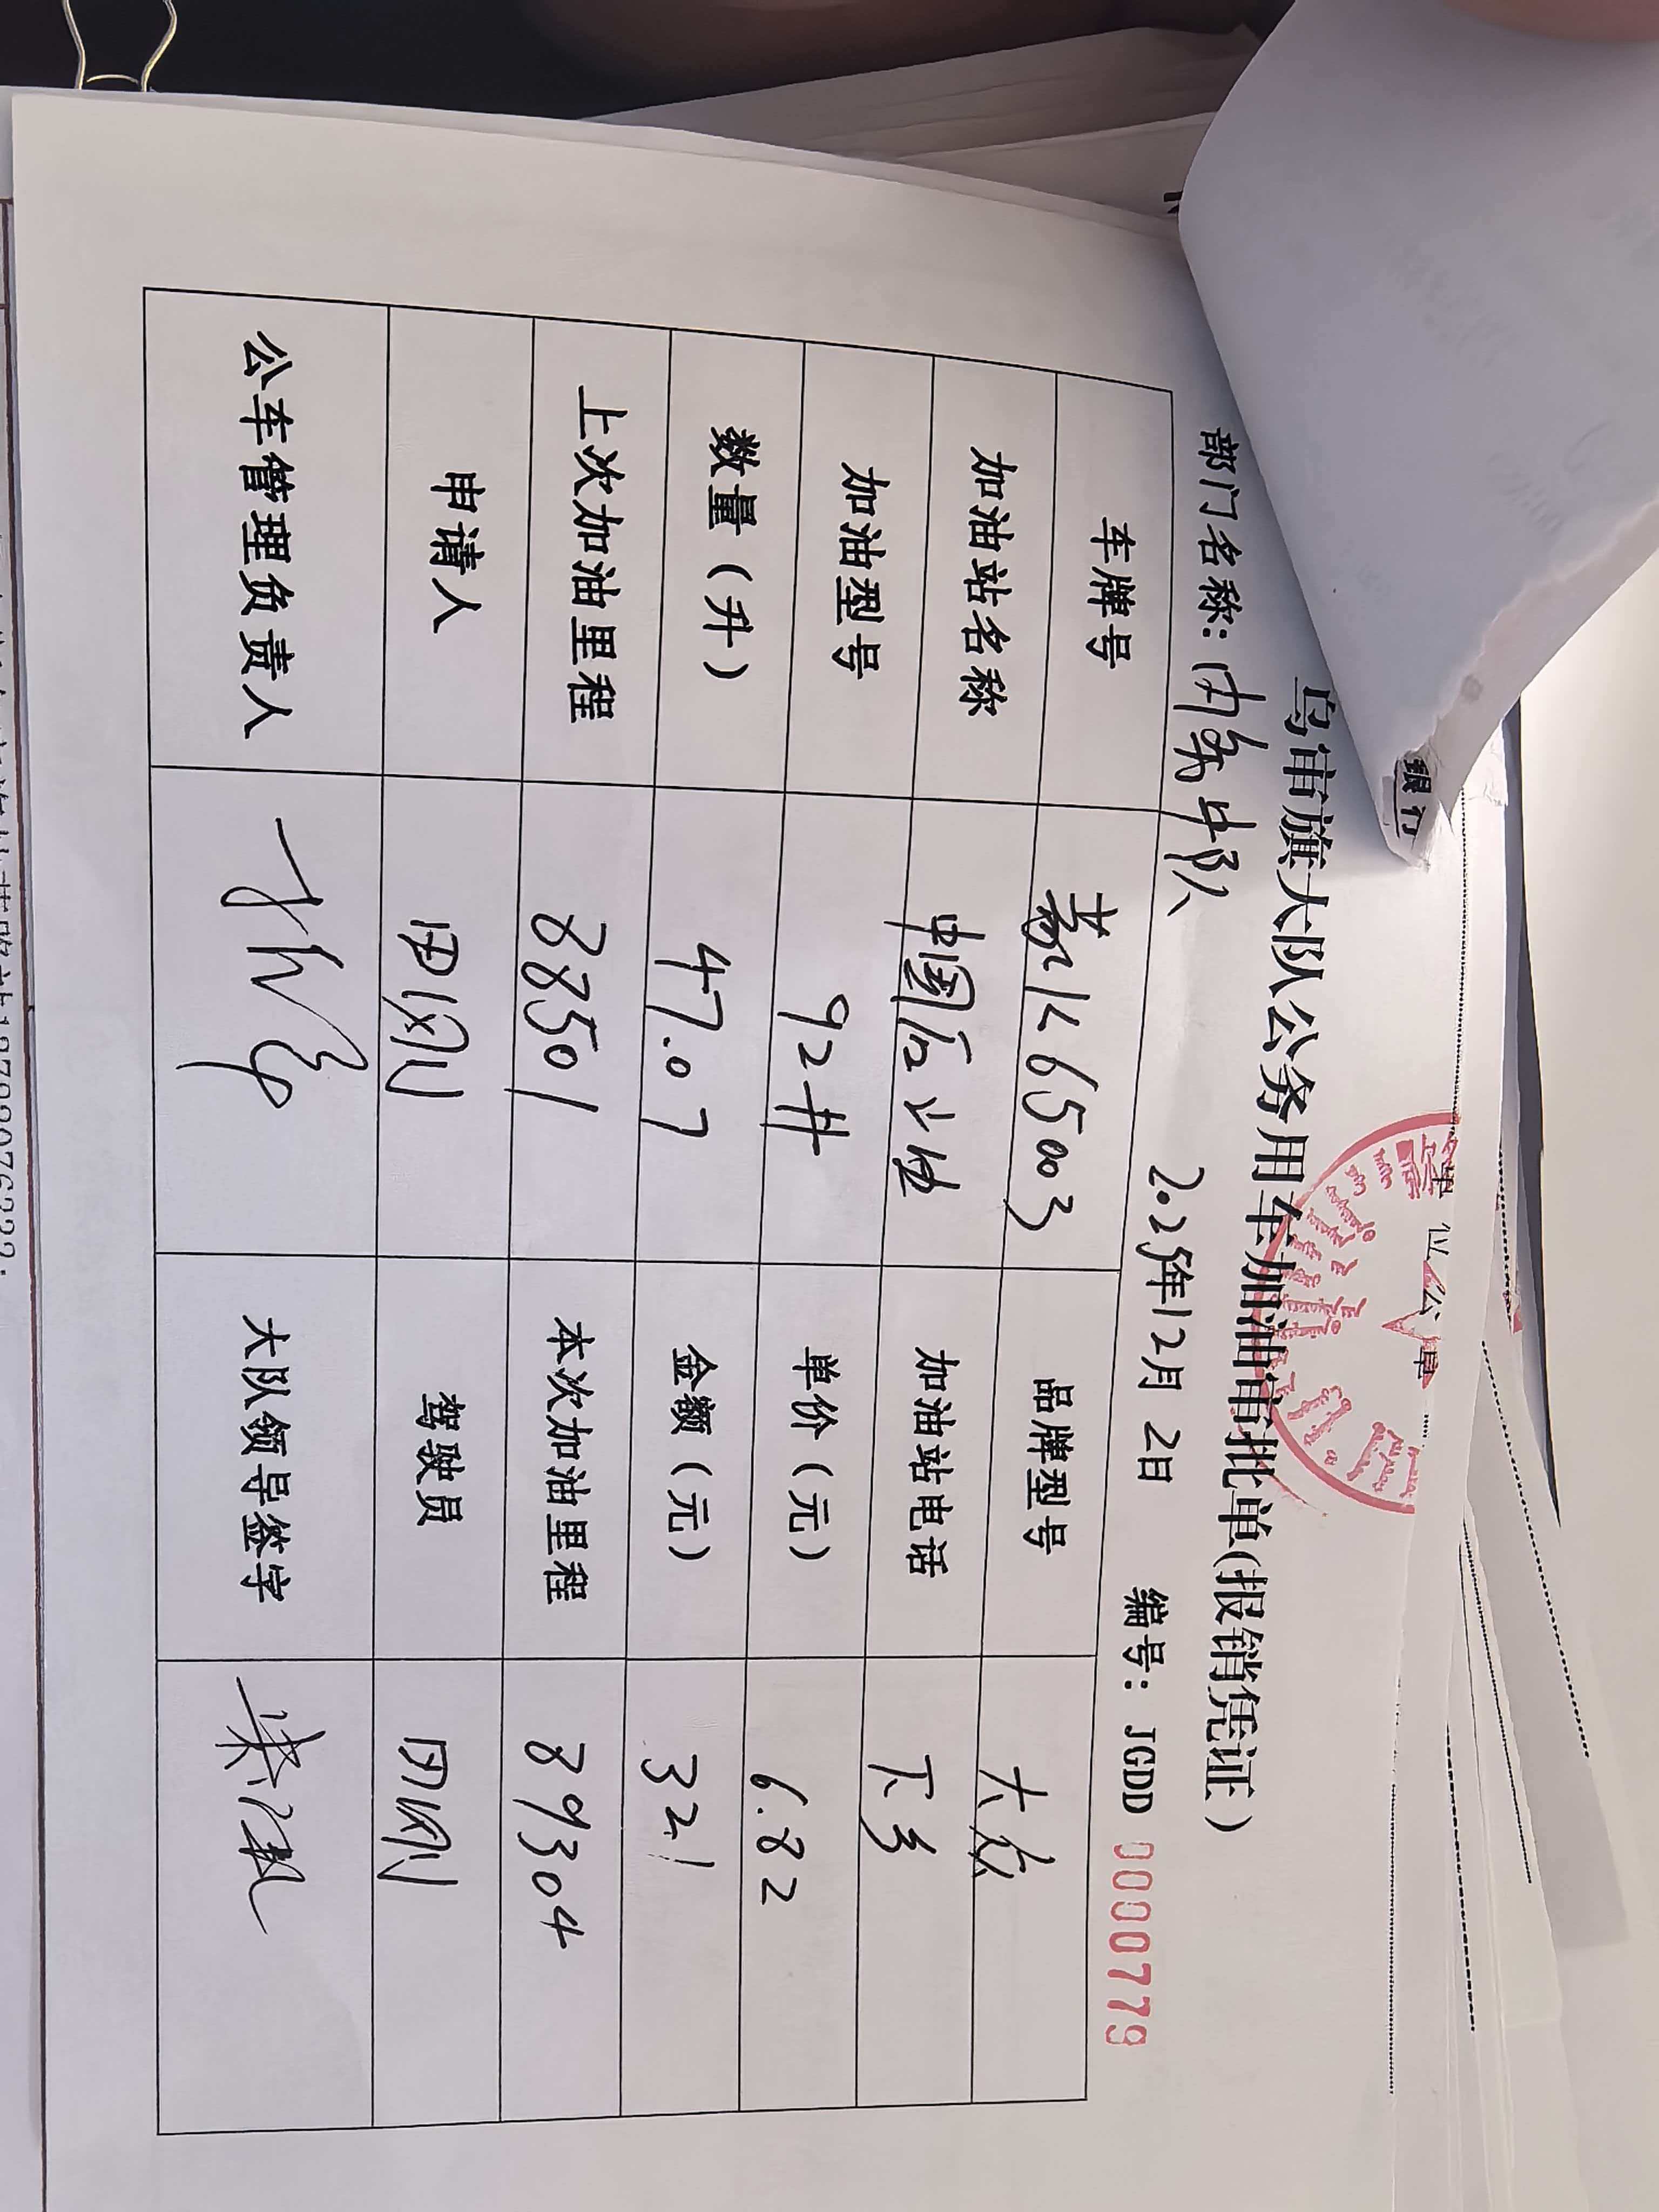 银行
单位公章
乌审旗大队公务用车加油审批单(报销凭证)
部门名称: 内案中队 2025年12月2日 编号: JGDD 0000779
车牌号 蒙K65003 品牌型号 大众
加油站名称 中国石油 加油站电话 下乡
加油型号 92# 单价(元) 6.82
数量(升) 47.07 金额(元) 321
上次加油里程 88501 本次加油里程 89304
申请人 田刚 驾驶员 田刚
公车管理负责人 大队领导签字